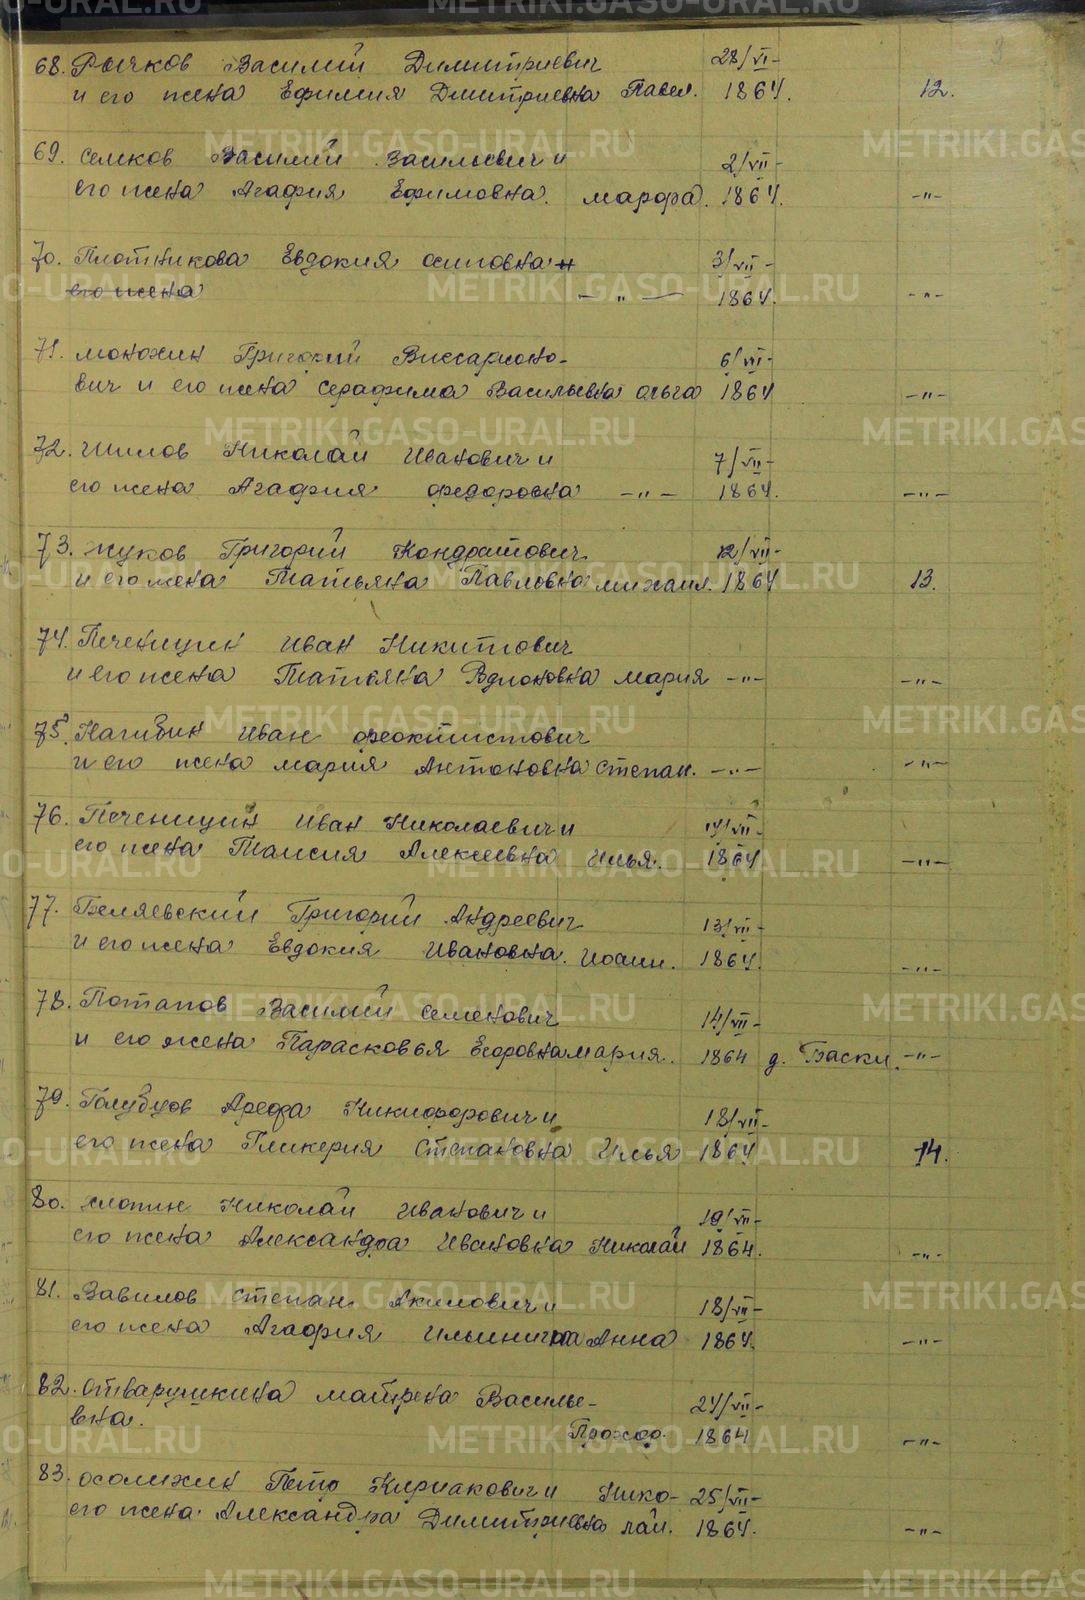 68. Рычков Василий Димитриевич 28/VI-
и его жена Ефимия Дмитриевна Павел. 1864. 12.
69. Семков Василий Васильевич и 2/VII-
его жена Агафия Ефимовна. Марфа. 1864. -"-
70. Плотникова Евдокия Осиповна и 3/VII-
его жена -"- 1864. -"-
71. Монохин Григорий Виссарионо- 6/VII-
вич и его жена Серафима Васильевна Ольга 1864 -"-
72. Шилов Николай Иванович и 7/VII-
его жена Агафия Федоровна -"- 1864. -"-
73. Жуков Григорий Кондратович 12/VII-
и его жена Татьяна Павловна Михаил. 1864 13.
74. Печеницин Иван Никитович
и его жена Татьяна Мария -"- -"-
75. Нагибин Иван Феоктистович
и его жена Мария Антоновна Степан. -"- -"-
76. Печеницин Иван Николаевич и /VII-
его жена Таисия Алексеевна Илья. 1864 -"-
77. Беляевский Григорий Андреевич 13/VII-
и его жена Евдокия Ивановна. Иоанн. 1864. -"-
78. Потапов Василий Семенович 14/VII-
и его жена Парасковья Егоровна Мария. 1864 д. Баски. -"-
79. Голубцов Арефа Никифорович и 18/VII-
его жена Гликерия Степановна Илья 1864 14.
80. Хлопин Николай Иванович и 19/VII-
его жена Александра Ивановна Николай 1864. -"-
81. Вавилов Степан Акилович и 18/VII-
его жена Агафия Ильинична Анна 1864. -"-
82. Отварушкина Матрена Василье- 24/VII-
вна. Прохор. 1864 -"-
83. Осолихин Петр Кириакович и Нико- 25/VII-
его жена Александра Димитриевна лай. 1864. -"-